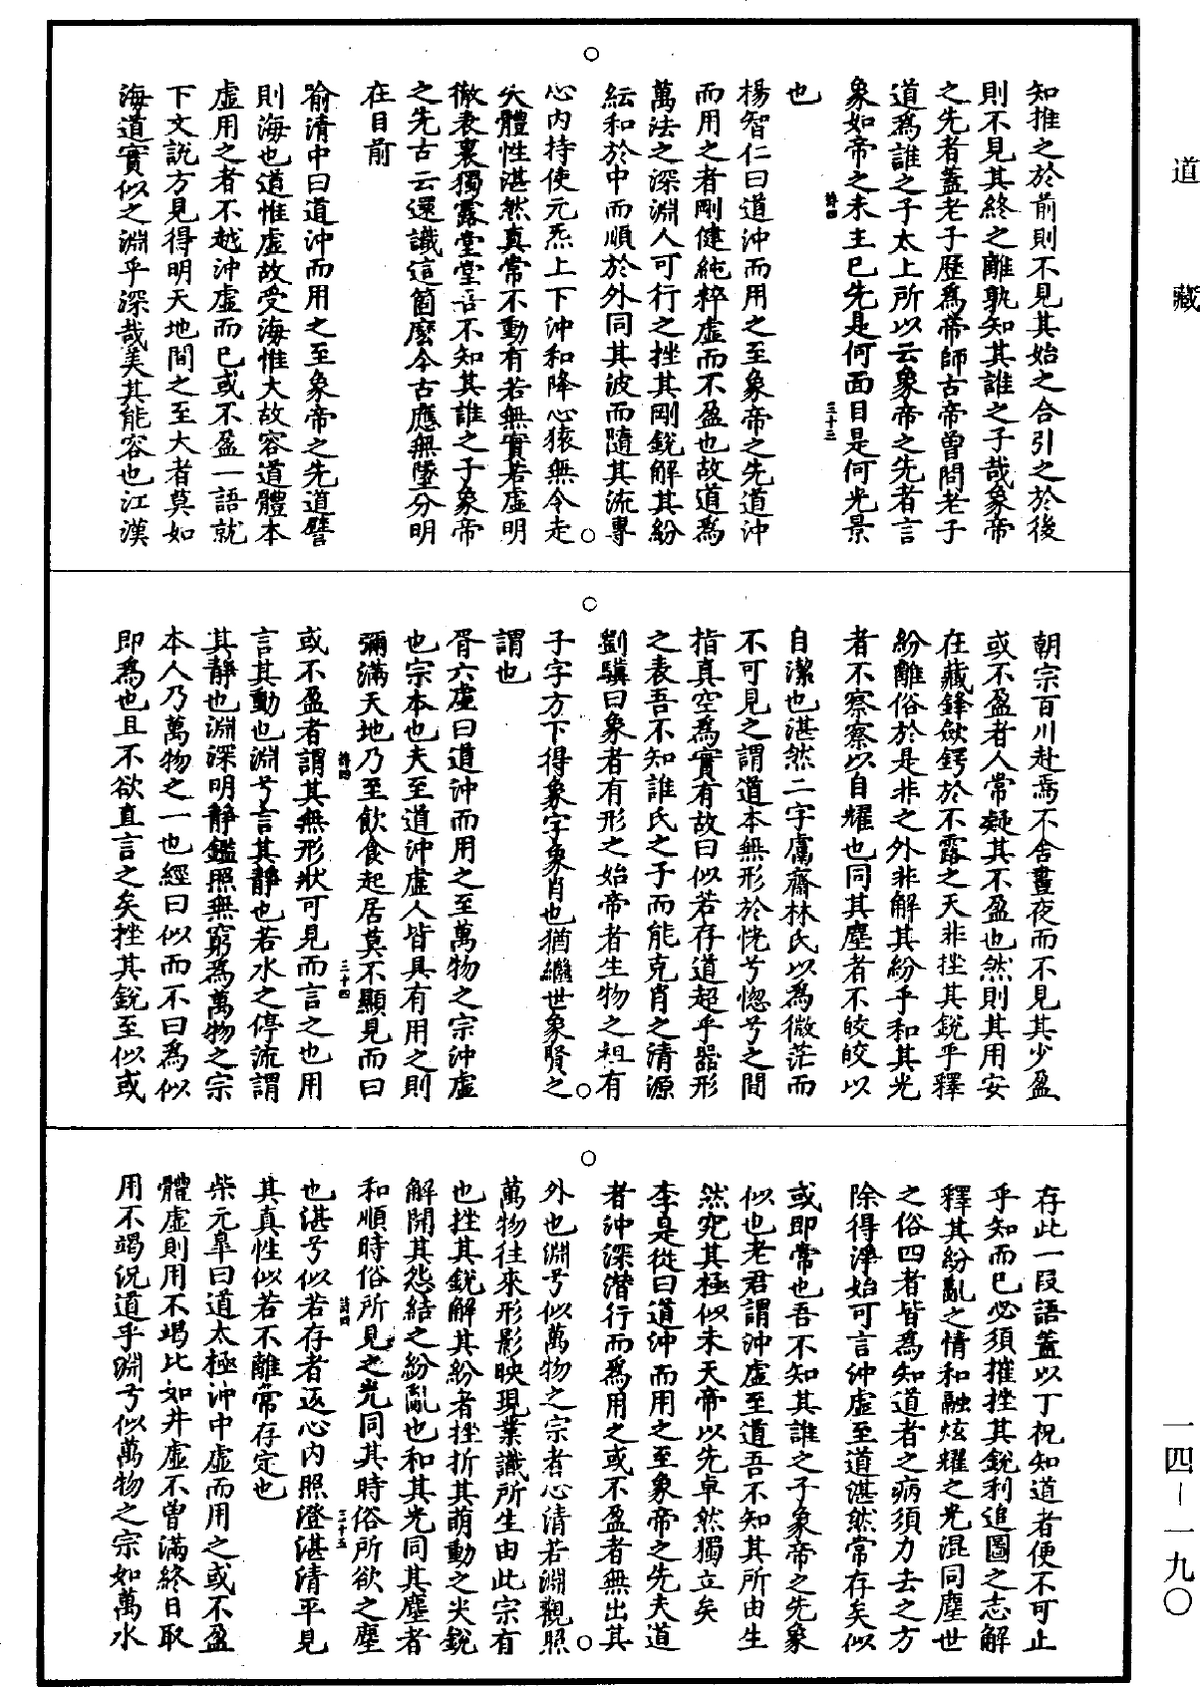 道藏
知推之於前則不見其始之合引之於後
則不見其終之離孰知其誰之子哉象帝
之先者蓋老子歷爲帝師古帝曾問老子
道爲誰之子太上所以云象帝之先者言
象如帝之未主已先是何面目是何光景
詩四
三十三
也
楊智仁曰道沖而用之至象帝之先道沖
而用之者剛健純粹虛而不盈也故道爲
萬法之深淵人可行之挫其剛銳解其紛
紜和於中而順於外同其波而隨其流專
心内持使元炁上下沖和降心猿無令走
失體性湛然真常不動有若無實若虛明
徹表裏獨露堂堂吾不知其誰之子象帝
之先古云還識這箇麽今古應無墜分明
在目前
喻清中曰道沖而用之至象帝之先道譬
則海也道惟虛故受海惟大故容道體本
虛用之者不越沖虛而已或不盈一語就
下文說方見得明天地間之至大者莫如
海道實似之淵乎深哉美其能容也江漢
朝宗百川赴焉不舍晝夜而不見其少盈
或不盈者人常疑其不盈也然則其用安
在藏鋒斂鍔於不露之天非挫其銳乎釋
紛離俗於是非之外非解其紛乎和其光
者不察察以自耀也同其塵者不皎皎以
自潔也湛然二字鬳齋林氏以爲微茫而
不可見之謂道本無形於恍兮惚兮之間
指真空爲實有故曰似若存道超乎器形
之表吾不知誰氏之子而能克肖之清源
劉驥曰象者有形之始帝者生物之祖有
子字方下得象字象肖也猶繼世象賢之
謂也
胥六虛曰道沖而用之至萬物之宗沖虛
也宗本也夫至道沖虛人皆具有用之則
彌滿天地乃至飲食起居莫不顯見而曰
詩四
三十四
或不盈者謂其無形狀可見而言之也用
言其動也淵兮言其靜也若水之停流謂
其靜也淵深明靜鑑照無窮爲萬物之宗
本人乃萬物之一也經曰似而不曰爲似
即爲也且不欲直言之矣挫其銳至似或
存此一段語蓋以丁祝知道者便不可止
乎知而已必須摧挫其銳利追圖之志解
釋其紛亂之情和融炫耀之光混同塵世
之俗四者皆爲知道者之病須力去之方
除得淨始可言沖虛至道湛然常存矣似
或即常也吾不知其誰之子象帝之先象
似也老君謂沖虛至道吾不知其所由生
然究其極似未天帝以先卓然獨立矣
李是從曰道沖而用之至象帝之先夫道
者沖深潛行而爲用之或不盈者無出其
外也淵兮似萬物之宗者心清若淵觀照
萬物往來形影映現業識所生由此宗有
也挫其銳解其紛者挫折其萌動之尖銳
解開其怨結之紛亂也和其光同其塵者
和順時俗所見之光同其時俗所欲之塵
詩四
三十五
也湛兮似若存者返心内照澄湛清平見
其真性似若不離常存定也
柴元皋曰道太極沖中虛而用之或不盈
體虛則用不竭比如井虛不曾滿終日取
用不竭況道乎淵兮似萬物之宗如萬水
一四—一九〇